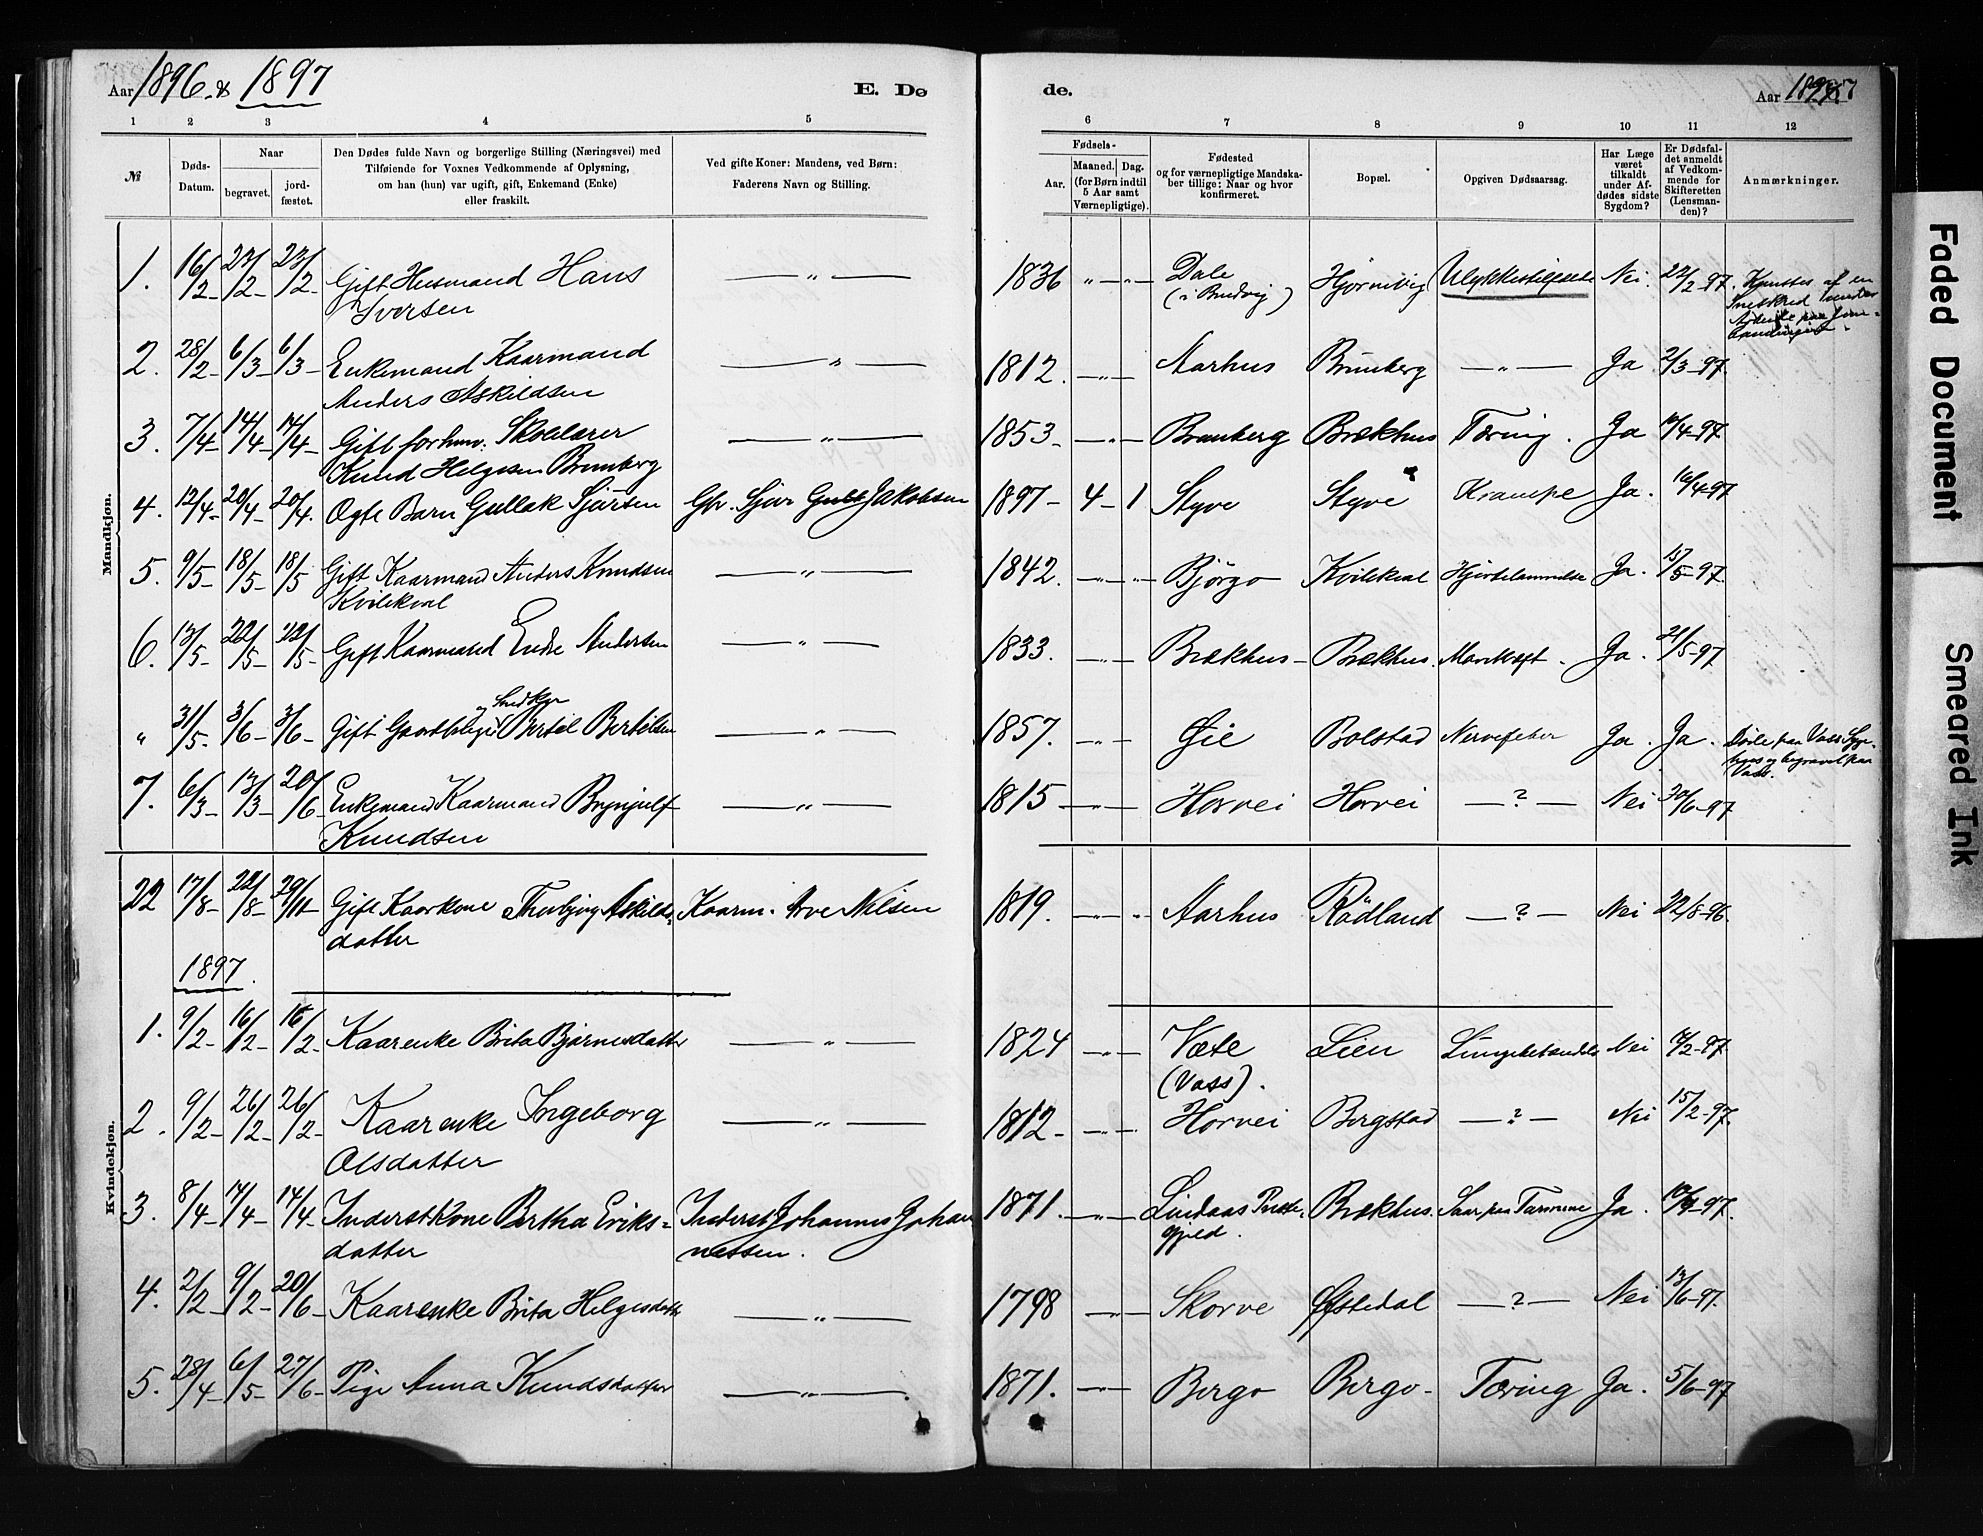 Aar 1896 & 1897 E. Dø de. Aar 1897
1 2 3 4 5 6 7 8 9 10 11 12
№
Døds-Datum.
Naar
begravet.
jord-fæstet.
Den Dødes fulde Navn og borgerlige Stilling (Næringsvei) med
Tilføiende for Voxnes Vedkommende af Oplysning,
om han (hun) var ugift, gift, Enkemand (Enke)
eller fraskilt.
Ved gifte Koner: Mandens, ved Børn:
Faderens Navn og Stilling.
Fødsels-
Aar.
Maaned. Dag.
(for Børn indtil
5 Aar samt
Værnepligtige).
Fødested
og for værnepligtige Mandska-
ber tillige: Naar og hvor
konfirmeret.
Bopæl.
Opgiven Dødsaarsag.
Har Læge
været
tilkaldt
under Af-
dødes sidste
Sygdom?
Er Dødsfal-
det anmeldt
af Vedkom-
mende for
Skifteretten
(Lensman-
den)?
Anmærkninger.
Mandkjøn.
1. 16/2 23/2 23/2 Gift Husmand Hans — " — 1836 " " Dale Nei. 22/2-97.
Iversen
2. 28/2 6/3 6/3 Enkemand Kaarmand — " — 1812. — " — Aarhus — " — Ja 2/3-97.
Anders Askildsen
3. 7/4 14/4 14/4 Gift forhenv. Skolelærer — " — 1853 — " — Brækhus Tæring. Ja
Knud Helgesen
4. 12/4 20/4 20/4 Ægte Barn Gullak Sjursen Gbr. Sjur Jakobsen 1897 - 4 - 1 Styve Styve Krampe Ja.
5. 9/5 18/5 18/5 Gift Kaarmand Anders Knudsen — " — 1842. — " — Bjørgo Kvilekval Ja. 15/5-97.
Kvilekval
6. 13/5 22/5 22/5 Gift Kaarmand Endre Andersen — " — 1833. — " — Brækhus Brækhus. Ja. 21/5-97
" 31/5 3/6 3/6 Gift Bertel Bertelsen — " — 1857. — " — Bolstad Nervefeber Ja. Ja. Døde paa Voss Syge-
hus og begravet paa
Voss.
7. 6/3 13/3 20/6 Enkemand Kaarmand Brynjulf — " — 1815 — " — Horvei Horvei — ? — Nei 30/6-97
Knudsen
Kvindekjøn.
22 17/8 22/8 29/11 Gift Kaarkone Thorbjørg Askilds- Kaarm. Arve Nilsen 1819. — " Aarhus Rødland — ? — Nei 22/8-96.
datter
1897.
1. 9/2 16/2 16/2 Kaarenke Brita — " — 1824 — " — Væte Lien Nei
(Voss).
2. 9/2 26/2 26/2 Kaarenke Ingeborg — " — 1812 — " — Horvei Bergstad — ? — Nei 15/2-97.
Olsdatter
3. 8/4 14/4 14/4 Inderstkone Bertha Eriks- Inderst Johannes Johan 1871. — " — Lindaas Præste- Brækhus. Ja.
datter nessen. Gjeld.
4. 2/2 9/2 20/6 Kaarenke Brita Helgesdatter — " — 1798 — " — Skorve — ? — Nei 13/6-97.
5. 28/4 6/5 27/6 Pige Anna Knudsdatter — " — 1871. — " — Bergo Bergo Tæring Ja. 5/6-97
Faded Document
Smeared Ink